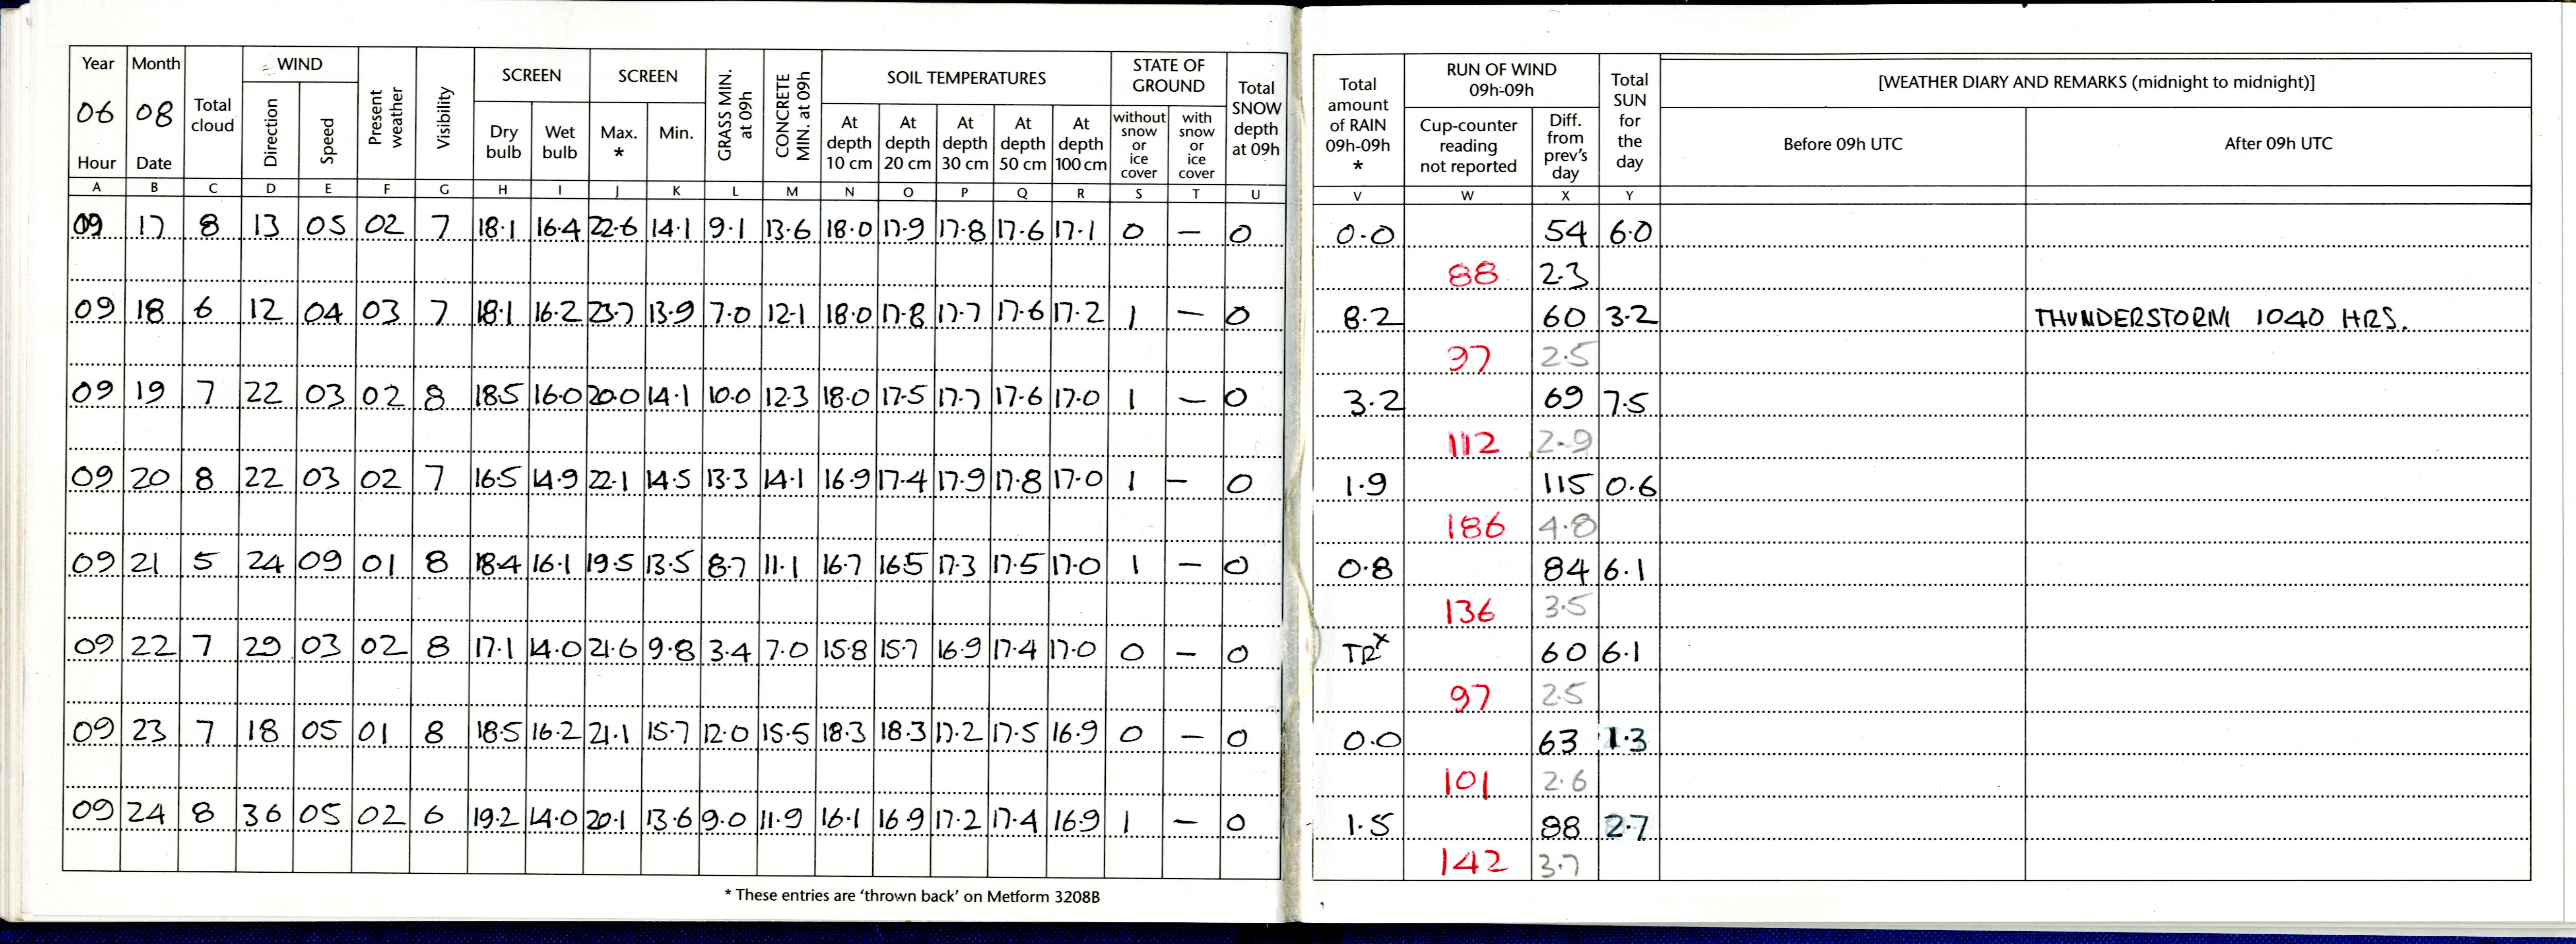 Year Month WIND SCREEN SCREEN SOIL TEMPERATURES STATE OF GROUND
06 08 Total cloud Direction Speed Present weather Visibility Dry bulb Wet bulb Max. * Min. GRASS MIN. at 09h CONCRETE MIN. at 09h At depth 10 cm At depth 20 cm At depth 30 cm At depth 50 cm At depth 100 cm without snow or ice cover with snow or ice cover Total SNOW depth at 09h
Hour Date
Total amount of RAIN 09h-09h * RUN OF WIND 09h-09h Cup-counter reading not reported Diff. from prev's day Total SUN for the day [WEATHER DIARY AND REMARKS (midnight to midnight)]
Before 09h UTC After 09h UTC
A B C D E F G H I J K L M N O P Q R S T U V W X Y
09 17 8 13 05 02 7 18.1 16.4 22.6 14.1 9.1 13.6 18.0 17.9 17.8 17.6 17.1 0 — 0 0.0 54 6.0
88 2.3
09 18 6 12 04 03 7 18.1 16.2 23.7 13.9 7.0 12.1 18.0 17.8 17.7 17.6 17.2 1 — 0 8.2 60 3.2 THUNDERSTORM 1040 HRS.
97 2.5
09 19 7 22 03 02 8 18.5 16.0 20.0 14.1 10.0 12.3 18.0 17.5 17.7 17.6 17.0 1 — 0 3.2 69 7.5
112 2.9
09 20 8 22 03 02 7 16.5 14.9 22.1 14.5 13.3 14.1 16.9 17.4 17.9 17.8 17.0 1 — 0 1.9 115 0.6
186 4.8
09 21 5 24 09 01 8 18.4 16.1 19.5 13.5 8.7 11.1 16.7 16.5 17.3 17.5 17.0 1 — 0 0.8 84 6.1
136 3.5
09 22 7 29 03 02 8 17.1 14.0 21.6 9.8 3.4 7.0 15.8 15.7 16.9 17.4 17.0 0 — 0 TR x 60 6.1
97 2.5
09 23 7 18 05 01 8 18.5 16.2 21.1 15.7 12.0 15.5 18.3 18.3 17.2 17.5 16.9 0 — 0 0.0 63 1.3
101 2.6
09 24 8 36 05 02 6 19.2 14.0 20.1 13.6 9.0 11.9 16.1 16.9 17.2 17.4 16.9 1 — 0 1.5 88 2.7
142 3.7
* These entries are 'thrown back' on Metform 3208B